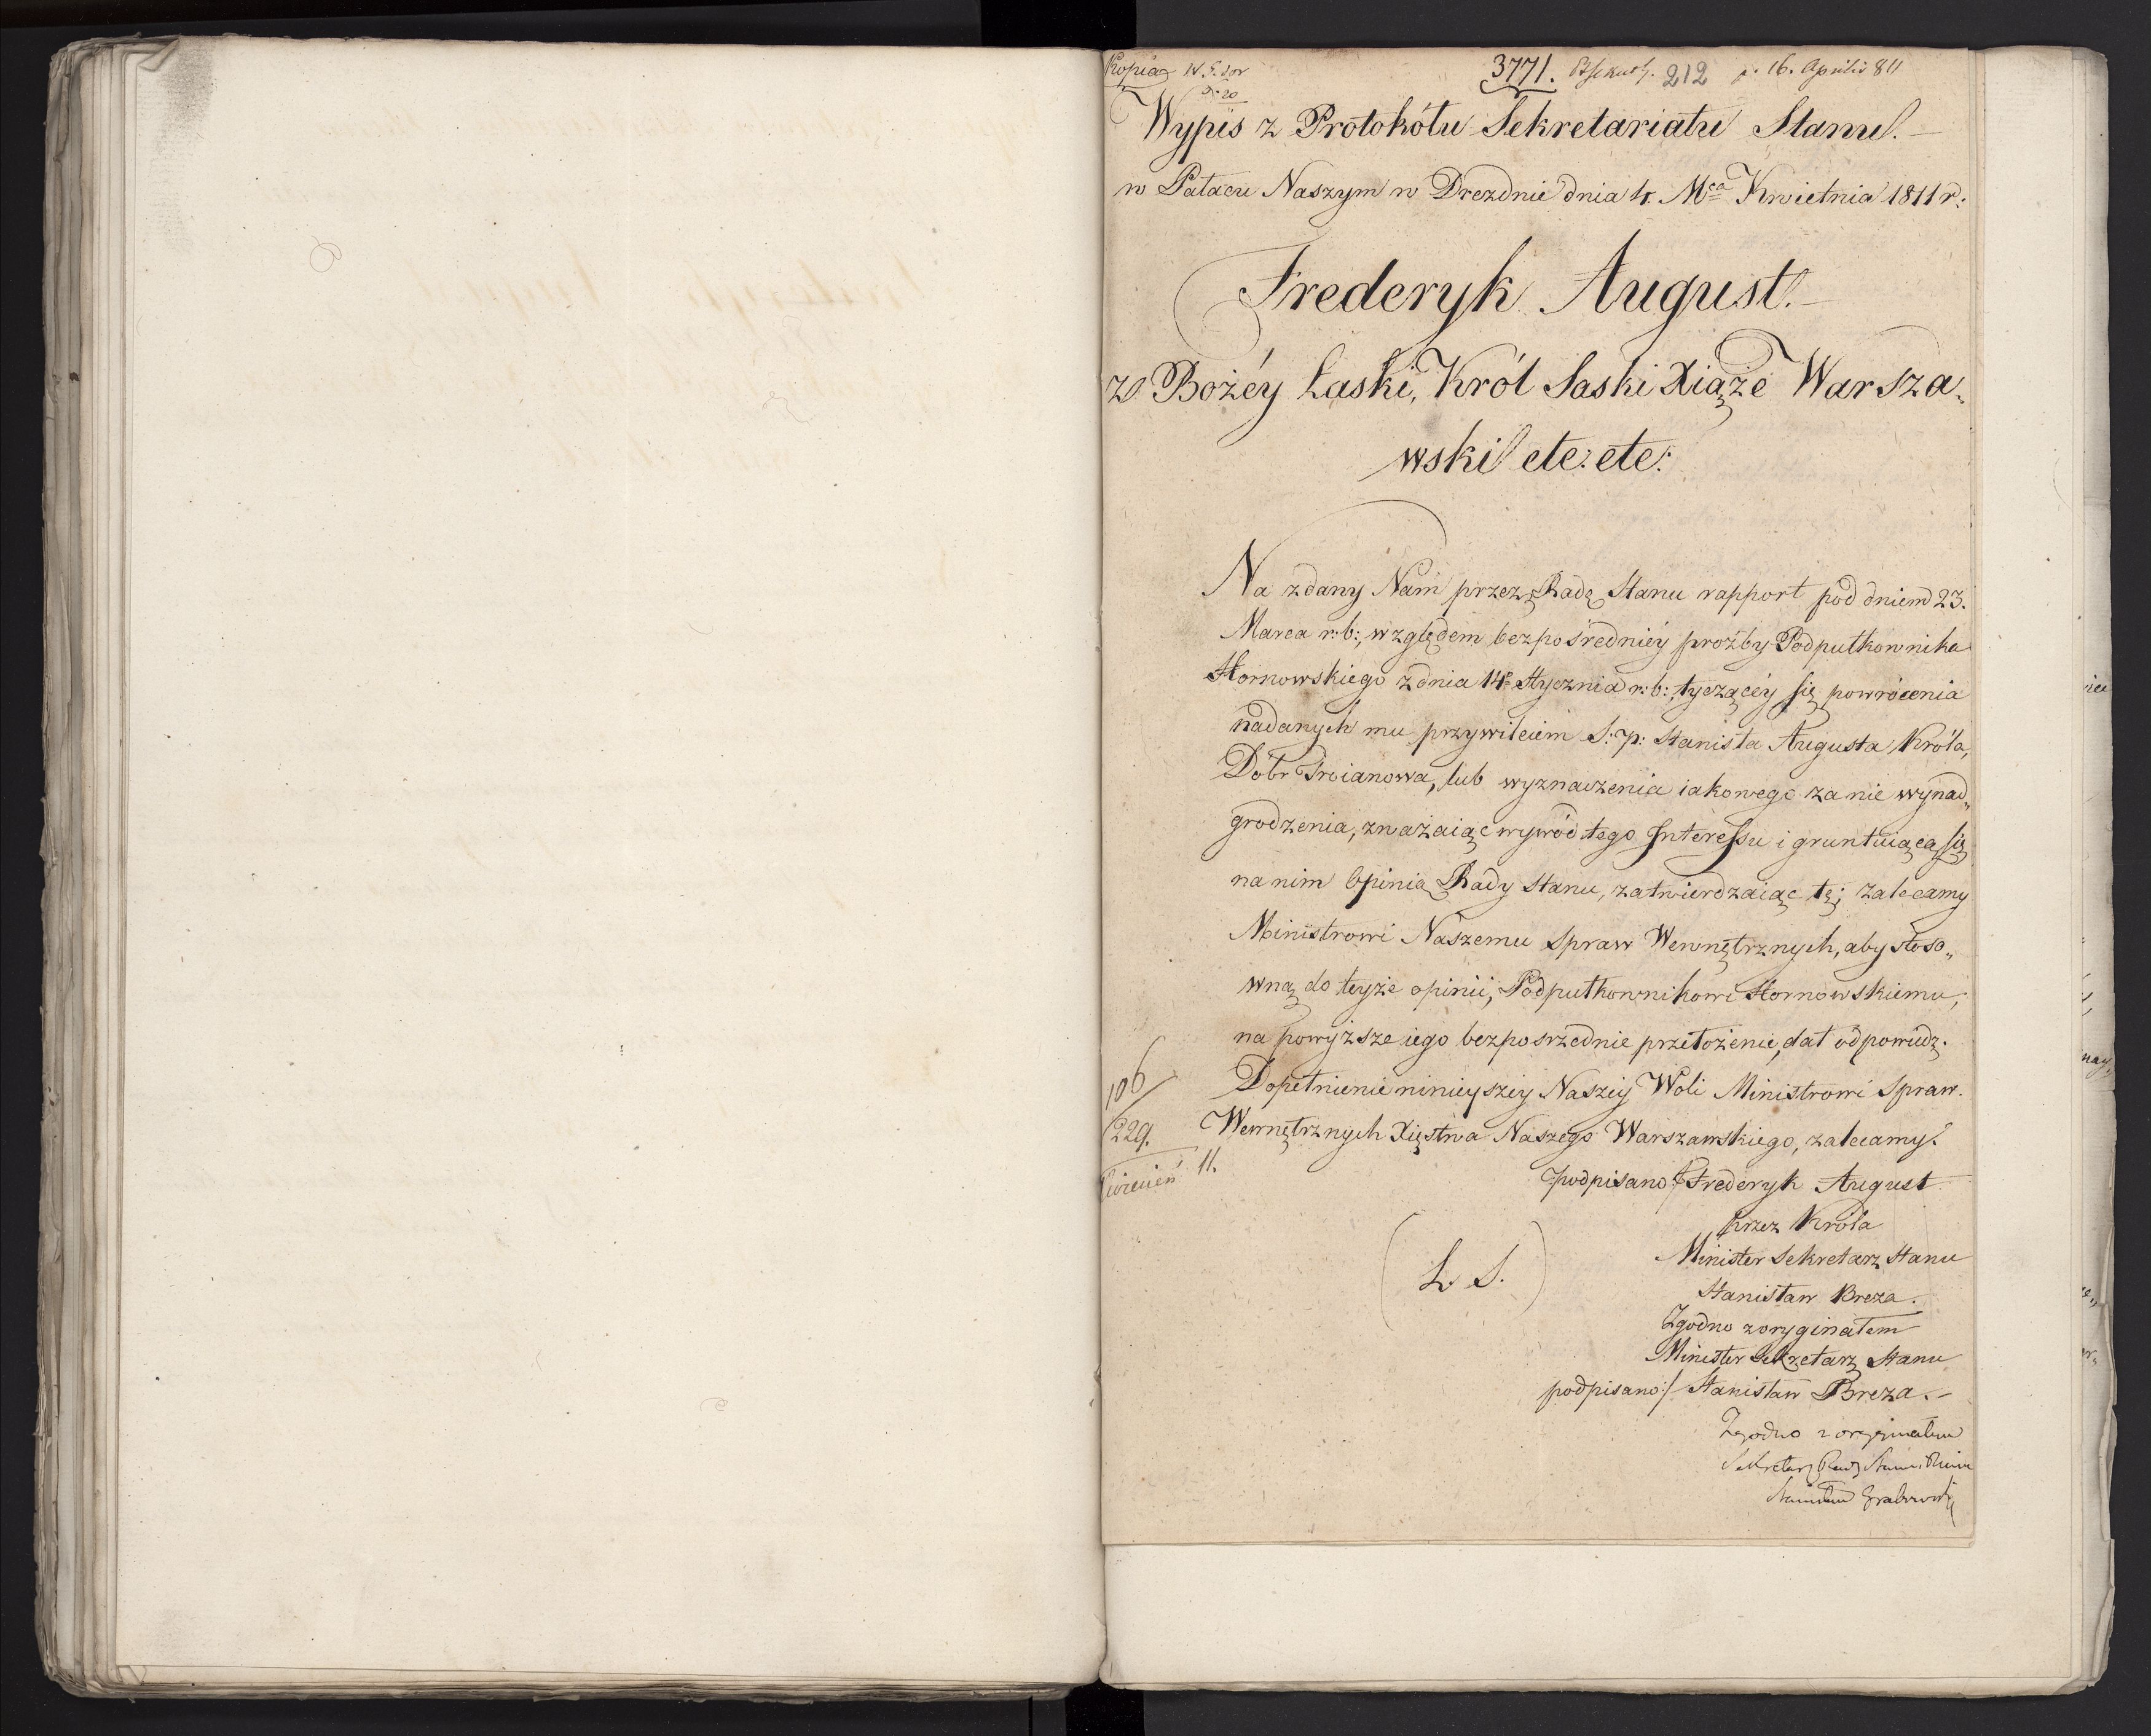 Kopia
3771. 212 16. Aprilis 811
Wypis z Protokółu Sekretariatu Stanu.
w Pałacu Naszym w Dreznie dnia 4. Mca Kwietnia 1811 r:
Frederyk August.
z Bożéy Łaski, Król Saski Xiąże Warsza„
wski etc: etc:
Na zdany Nam przez Radę Stanu rapport pod dniem 23.
Marca r: b:, względem bezpośredniéy prośby Podpułkownika
Hornowskiego z dnia 14o Stycznia r: b: tyczącéy się powrócenia
nadanych mu przywileiem S: p: Stanisła Augusta Króla,
Dóbr Troianowa, lub wyznaczenia iakowego za nie wynad„
grodzenia, zważaiąc wywód tego Interessu i gruntuiącą się
na nim Opinią Rady Stanu, zatwierdzaiąc tę; zalecamy
Ministrowi Naszemu Spraw Wewnętrznych, aby stoso„
wną do teyże opinii, Podpułkownikowi Hornowskiemu,
na powyższe iego bezposrzednie przełożenie, dał odpowiedz.
106
Dopełnienie ninieyszéy Naszéy Woli Ministrowi Spraw
229.
Wewnętrznych Xięstwa Naszego Warszawskiego, zalecamy.
11.
podpisano:/ Frederyk August
przez Króla
Minister Sekretarz Stanu
(L. S.)
Stanisław Breza.
Zgodno z oryginałem
Minister Sekretarz Stanu
podpisano:/ Stanisław Breza.-
Zgodno z oryginałem
Sekretarz Rady Stanu
Stanisław Grabowski